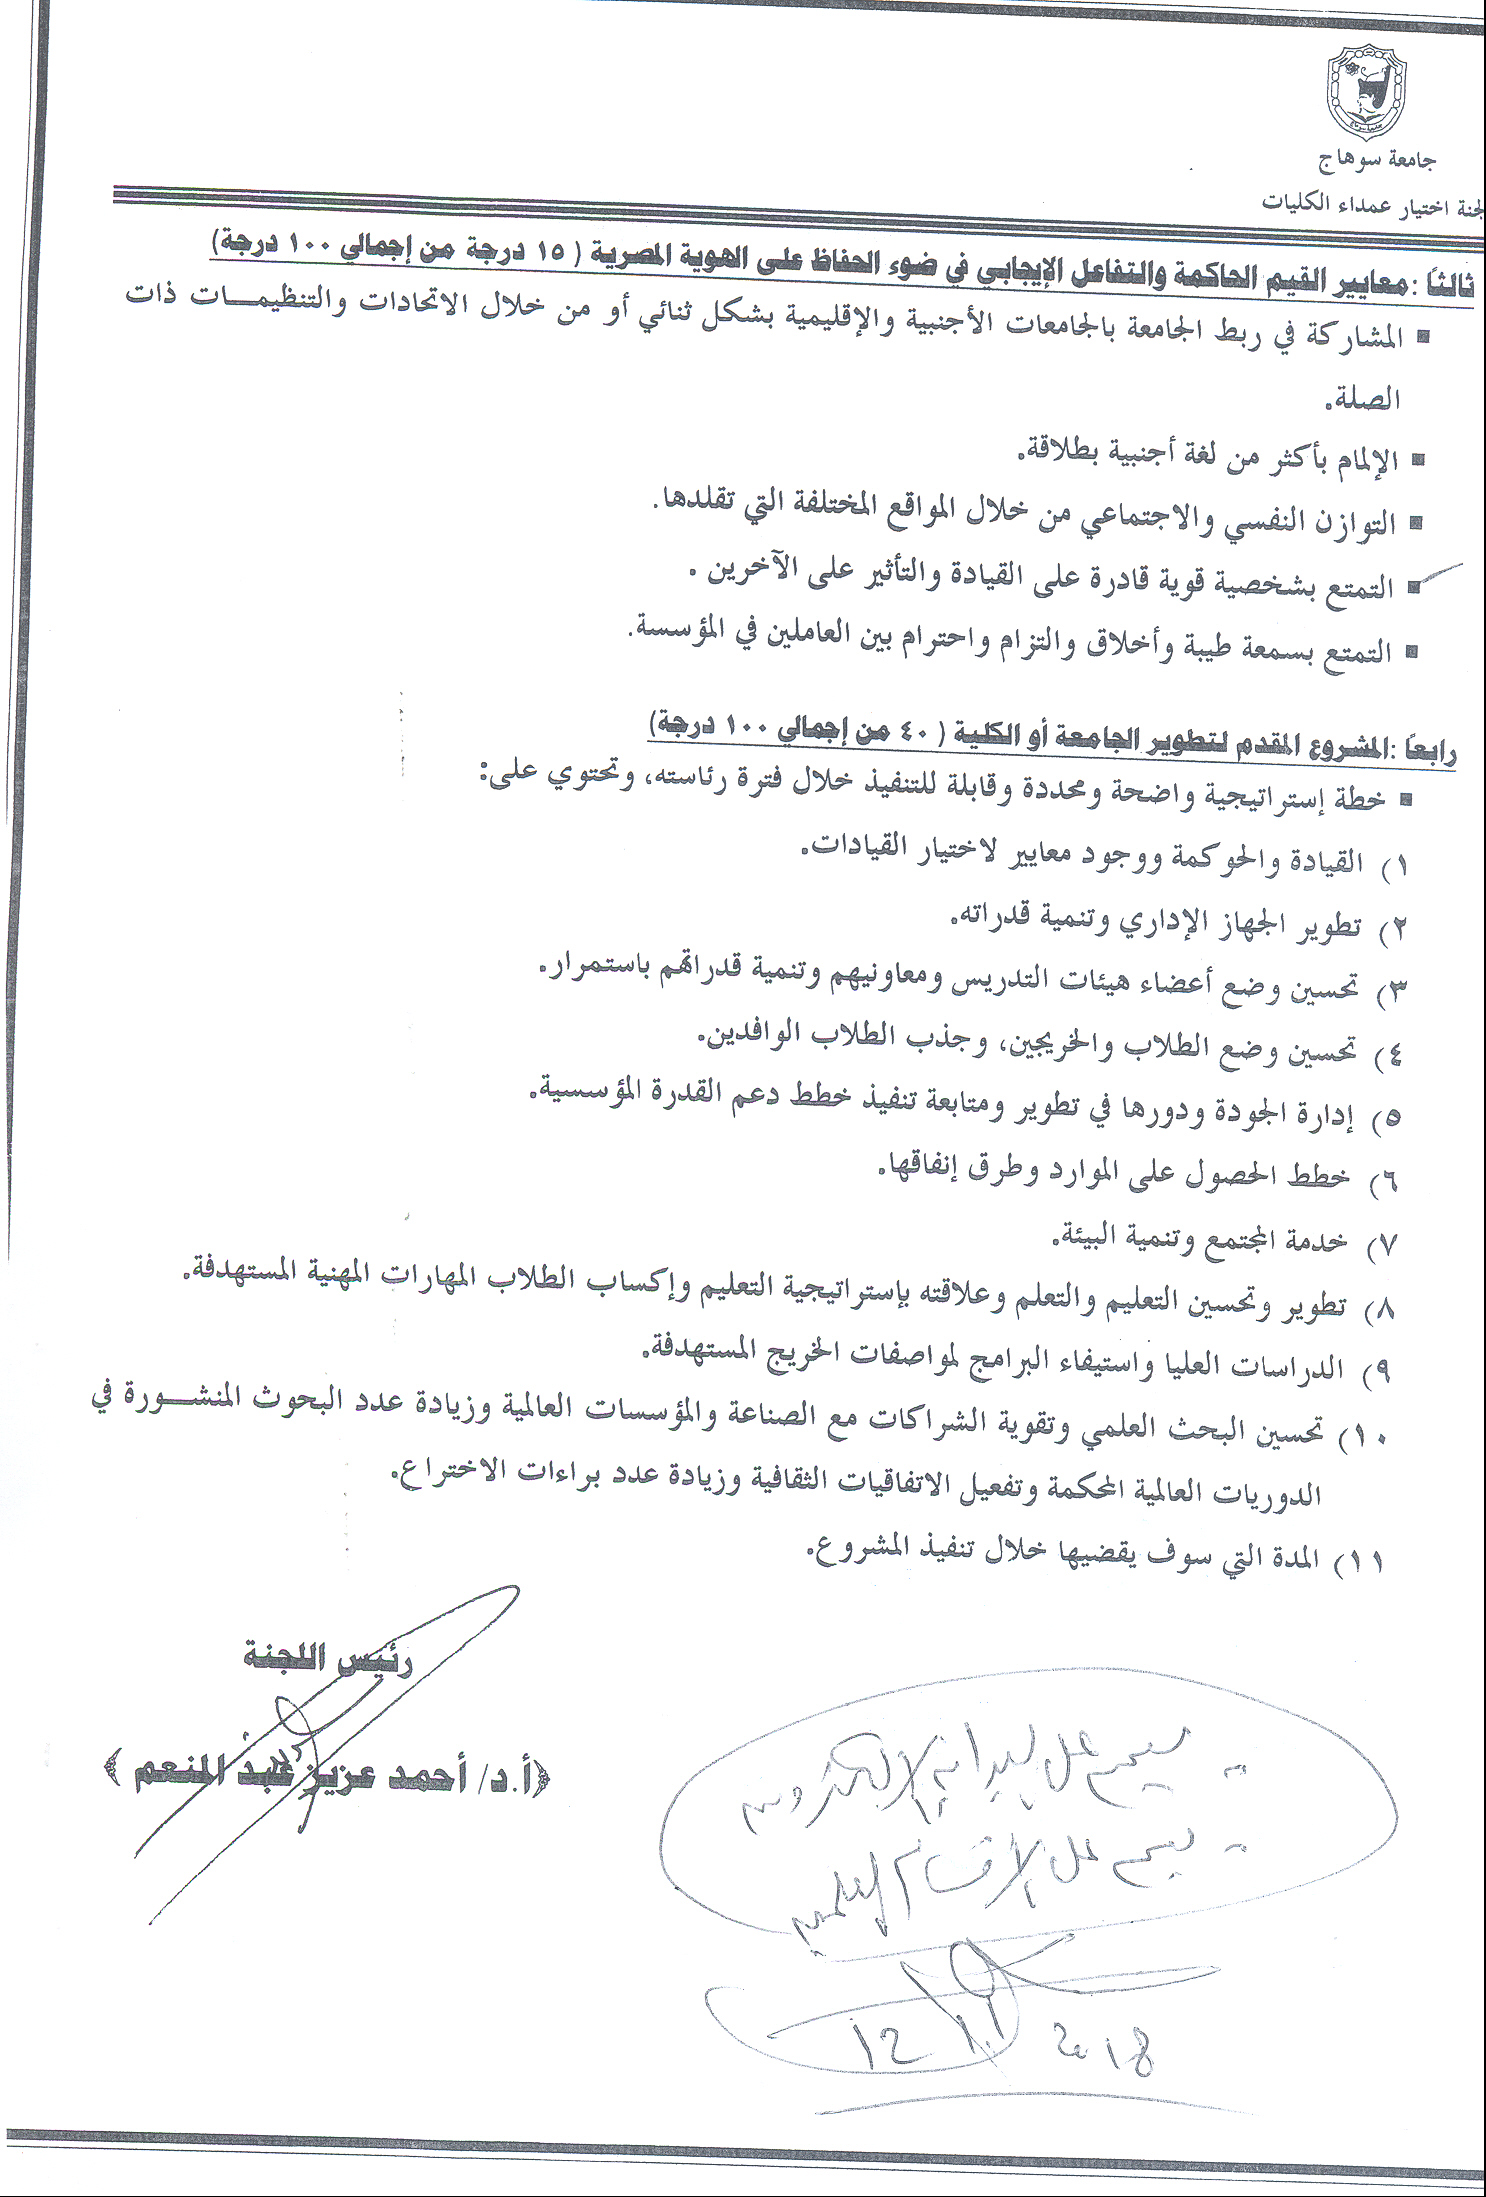 جامعة سوهاج
لجنة اختيار عمداء الكليات
ثالثاً :معايير القيم الحاكمة والتفاعل الإيجابي في ضوء الحفاظ على الهوية المصرية ( ١٥ درجة من إجمالي ١٠٠ درجة)
▪ المشاركة في ربط الجامعة بالجامعات الأجنبية والإقليمية بشكل ثنائي أو من خلال الاتحادات والتنظيمـــات ذات
الصلة.
▪ الإلمام بأكثر من لغة أجنبية بطلاقة.
▪ التوازن النفسي والاجتماعي من خلال المواقع المختلفة التي تقلدها.
▪ التمتع بشخصية قوية قادرة على القيادة والتأثير على الآخرين .
▪ التمتع بسمعة طيبة وأخلاق والتزام واحترام بين العاملين في المؤسسة.
رابعاً :المشروع المقدم لتطوير الجامعة أو الكلية ( ٤٠ من إجمالي ١٠٠ درجة)
▪ خطة إستراتيجية واضحة ومحددة وقابلة للتنفيذ خلال فترة رئاسته، وتحتوي على:
١) القيادة والحوكمة ووجود معايير لاختيار القيادات.
٢) تطوير الجهاز الإداري وتنمية قدراته.
٣) تحسين وضع أعضاء هيئات التدريس ومعاونيهم وتنمية قدراتهم باستمرار.
٤) تحسين وضع الطلاب والخريجين، وجذب الطلاب الوافدين.
٥) إدارة الجودة ودورها في تطوير ومتابعة تنفيذ خطط دعم القدرة المؤسسية.
٦) خطط الحصول على الموارد وطرق إنفاقها.
٧) خدمة المجتمع وتنمية البيئة.
٨) تطوير وتحسين التعليم والتعلم وعلاقته بإستراتيجية التعليم وإكساب الطلاب المهارات المهنية المستهدفة.
٩) الدراسات العليا واستيفاء البرامج لمواصفات الخريج المستهدفة.
١٠) تحسين البحث العلمي وتقوية الشراكات مع الصناعة والمؤسسات العالمية وزيادة عدد البحوث المنشـــورة في
الدوريات العالمية المحكمة وتفعيل الاتفاقيات الثقافية وزيادة عدد براءات الاختراع.
١١) المدة التي سوف يقضيها خلال تنفيذ المشروع.
رئيس اللجنة
﴿أ.د/ أحمد عزيز عبد المنعم ﴾
- يعمم على
- يعمم على الأقسام العلمية
2018